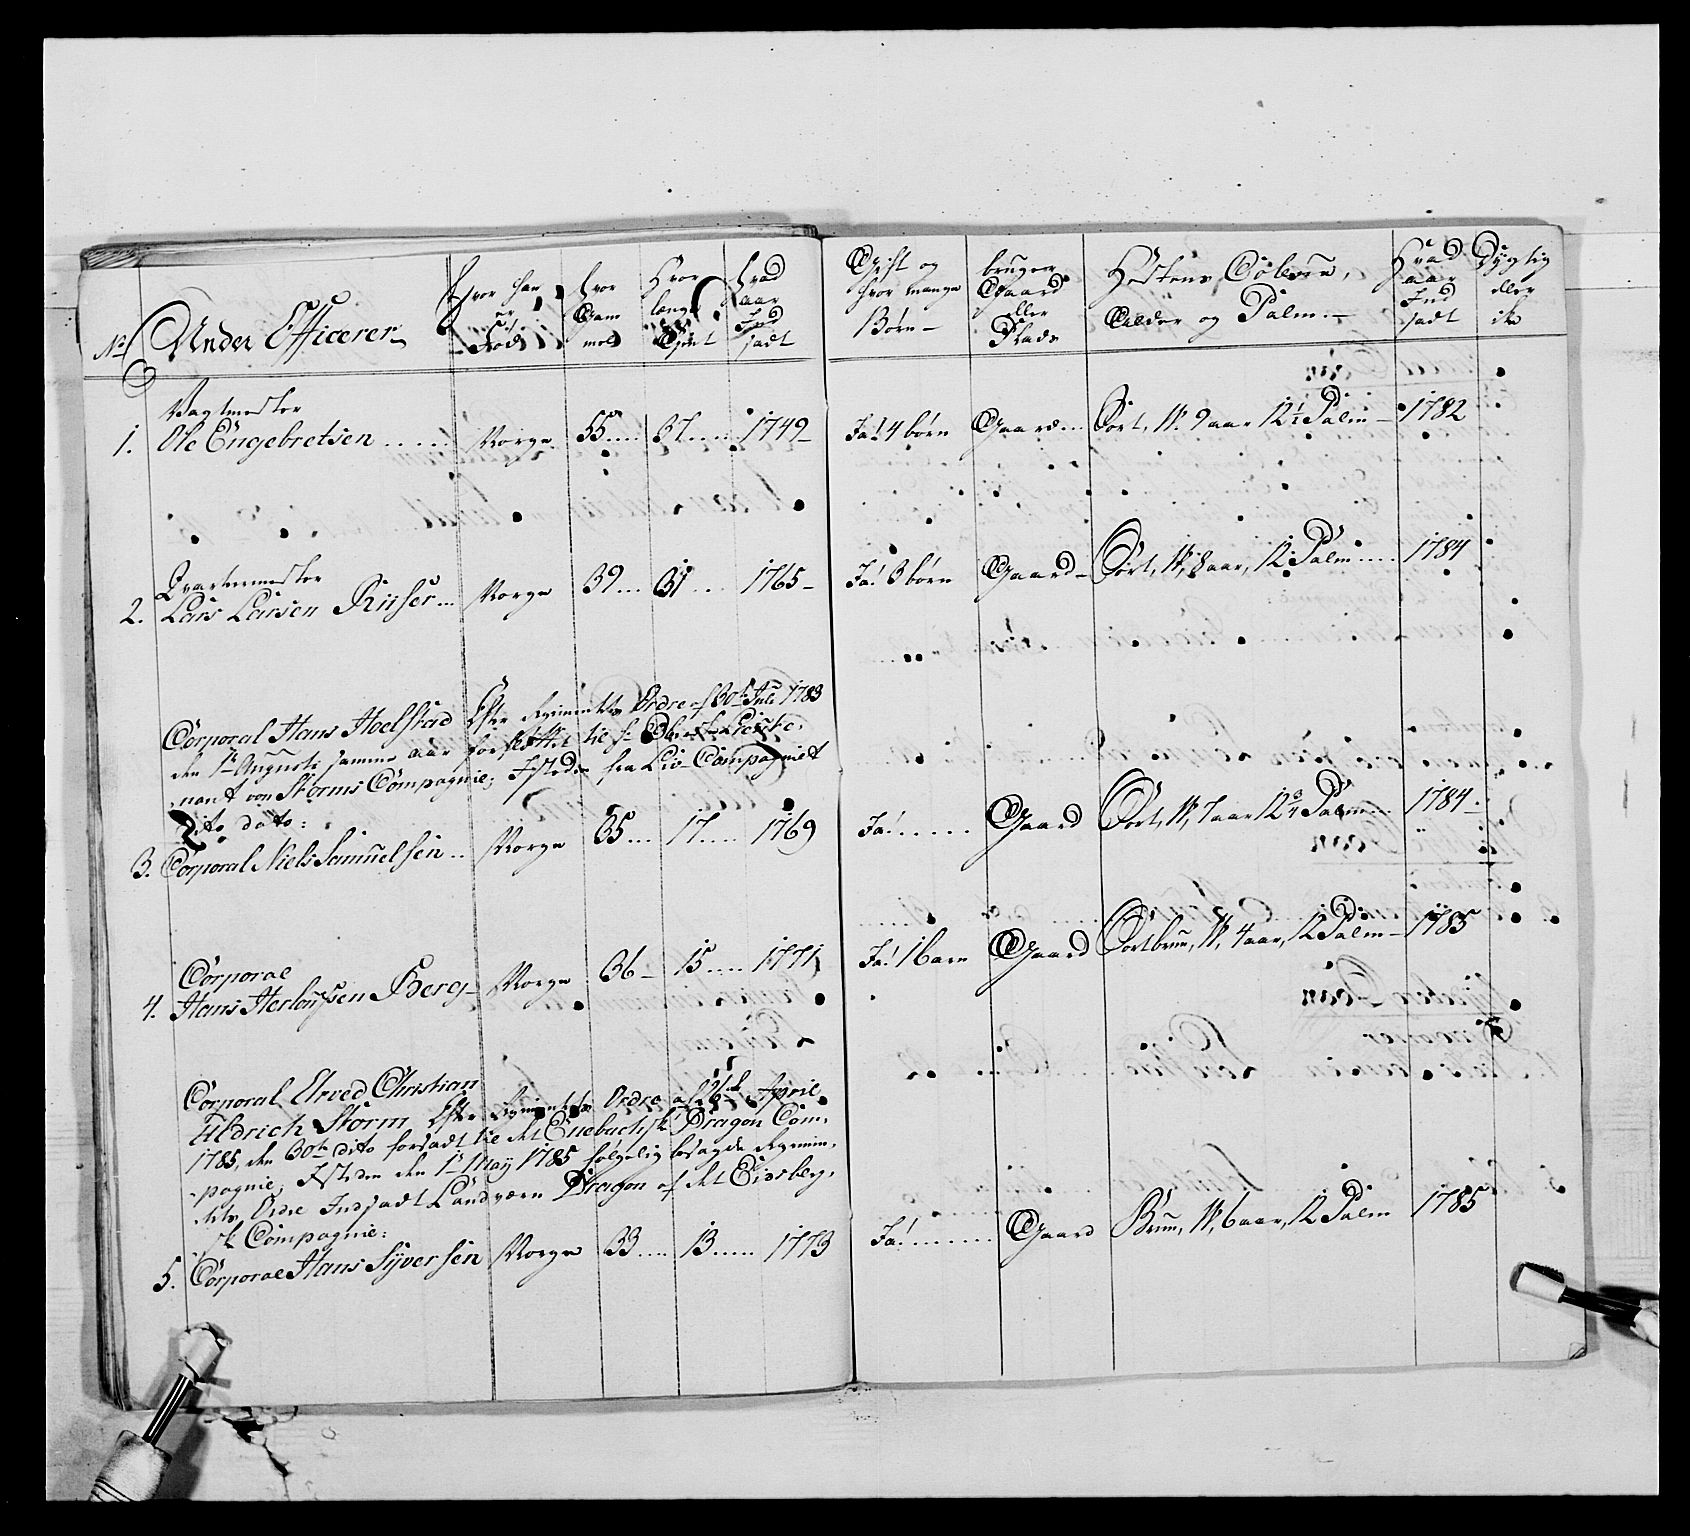 No
Under Officerer
Hvor han er Fød
Hvor Gammel
Hvor længe Tjent
Hvad aar Indsadt
Gift og hvor mange Børn
bruger Gaard eller Plads
Hestens Coleur, Alder og Palm.
Hvad aar Indsadt
Dygtig eller ik
Vagtmester
1. Ole Engebretsen ...... Norge 55.... 37..... 1749 Ja! 4 børn Gaard... Sort, W. 9 aar 12½ Palm 1782
Qvartermester
2. Lars Larsen Riiser... Norge 39.... 31.... 1765 Ja! 3 børn Gaard Sort, W, 8 aar, 12 Palm..... 1784
Corporal Hans Hoelstad Efter Regimentets Ordre af 30te Juli 1783
den 1te Augusti samme aar forfløttet til Hr Obrist Lieute-
nant von Storms Compagnie; Isteden fra Liv Compagniet
dito dato:
3. Corporal Niels Samuelsen.. Norge 35.... 17..... 1769 Ja!...... Gaard Sort, W, 7 aar 12¾ Palm... 1784
Corporal
4. Hans Herlousen Berg Norge 36 15..... 1771 Ja! 1 Barn Gaard Sortbrun, W, 4 aar, 12 Palm 1785
Corporal Arved Christian
Uldrich Storm Efter Regimentets Ordre af 26de April
1785, den 30te dito forsadt til det Enebachske Dragon Com-
pagnie; Isteden den 1te Maÿ 1785 følgelig besagde Regimen-
tets Ordre Indsadt Landværn Dragon af det Eidsberg-
sk Compagnie:
5. Corporal Hans Sÿversen Norge 33..... 13...... 1773 Ja!........ Gaard Brun, W, 6 aar, 12 Palm 1785